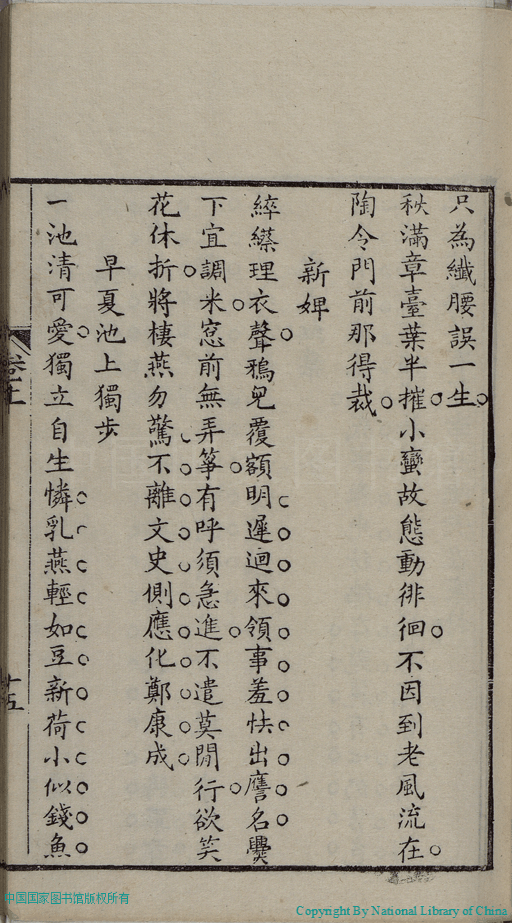 只為纖腰誤一生
秋滿章臺葉半摧小蠻故態動徘徊不因到老風流在
陶令門前那得裁
新婢
綷縩理衣聲鴉兒覆額明遲迴來領事羞怏出譍名爨
下宜調米窓前無弄箏有呼須急進不遣莫閒行欲笑
花休折將棲燕勿驚不離文史側應化鄭康成
早夏池上獨步
一池清可愛獨立自生憐乳燕輕如豆新荷小似錢魚
卷十
十五
中国国家图书馆版权所有
Copyright By National Library of China